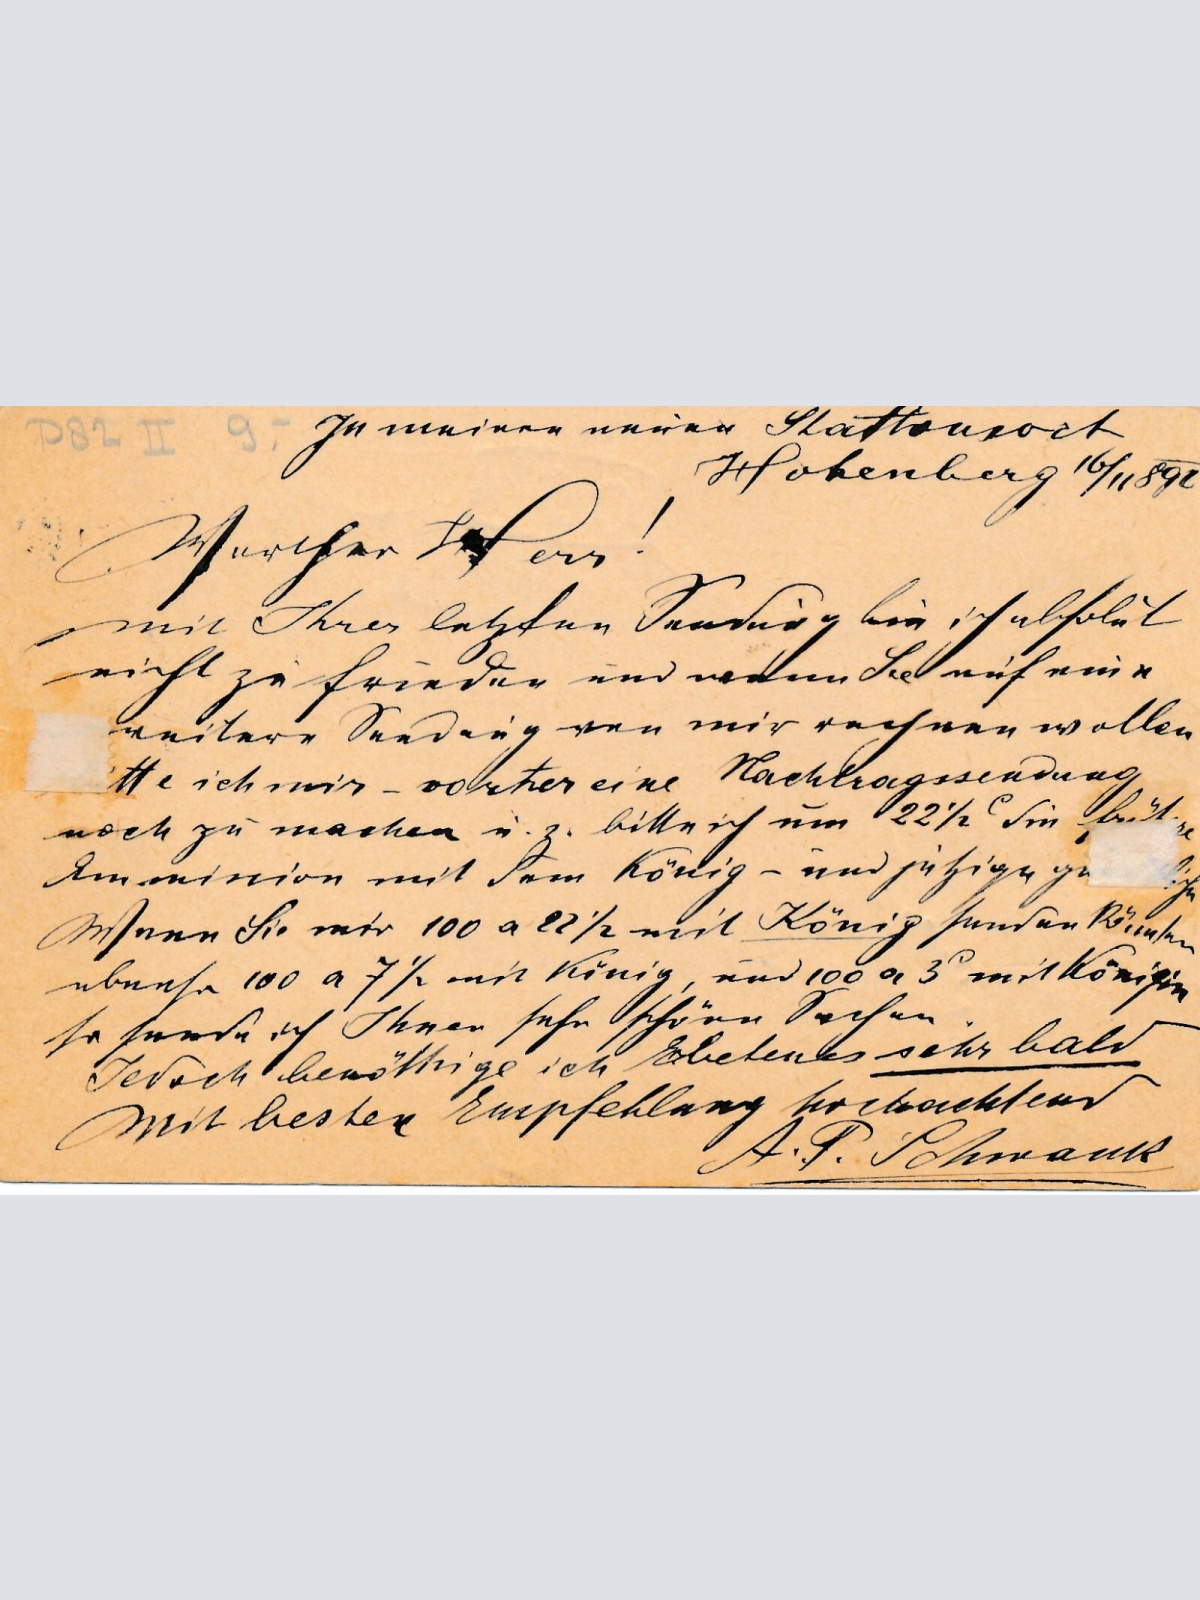 D82 II 9.-
In meinem neuen Stattonsort
Hohenberg 16/11 892
Werther Herr!
mit Ihrer letzten Sendung bin ich absolut
nicht zu frieden und wenn Sie auf eine
weitere Sendung von mir rechnen wollen
itte ich mir - vorher eine Nachtragssendung
noch zu machen u. z. bitte ich um 22 1/2 c die
Emmision mit dem König - und jetzige
Wenn Sie mir 100 a 22 1/2 mit König senden
ebenso 100 a 7 1/2 mit König, und 100 a 3 c mit Königin
so sende ich Ihnen sehr schöne Sachen.
Jedoch benöthige ich Erbetenes sehr bald
Mit besten Empfehlung hochachtend
A. P. Schwank